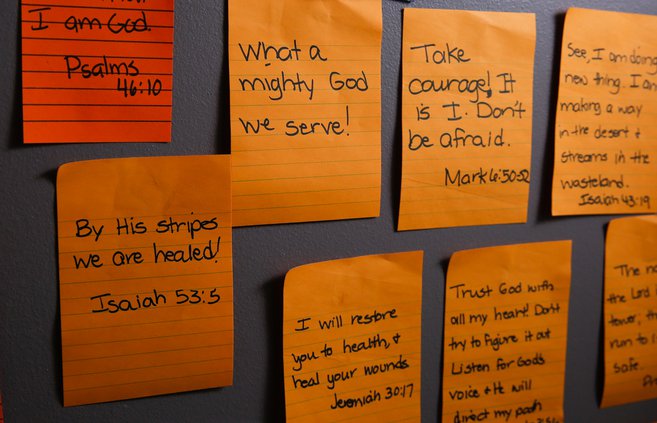 I am God
Psalms
46:10
What a
mighty God
we serve!
Take
courage! It
is I. Don't
be afraid.
Mark 6:50-52
See, I am doing
new thing. I am
making a way
in the desert &
streams in the
wasteland.
Isaiah 43:19
By His stripes
we are healed!
Isaiah 53:5
I will restore
you to health, &
heal your wounds
Jeremiah 30:17
Trust God with
all my heart! Don't
try to figure it out
Listen for God's
voice & He will
direct my path
The
the Lord
tower, th
run to
safe.